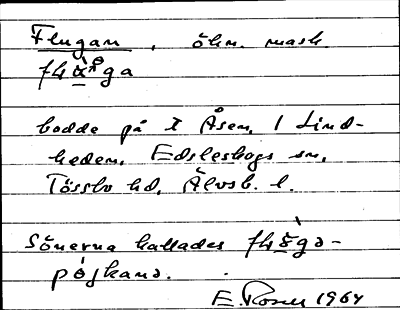 Flugan, ökn. mask.
bodde på X Åsen, i Lind-
heden, Edsleskogs sn,
Tössbo hd, Älvsb. l.
Sönerna kallades
pojkana.
E. Rosen 1964